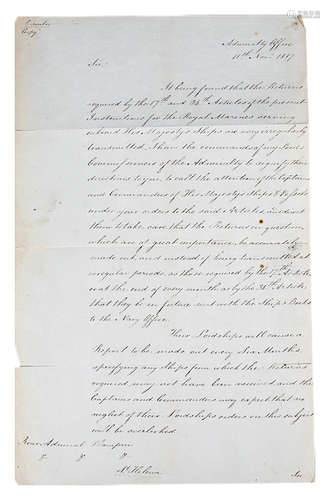 Copy
Admiralty Office
11th Novr 1817
Sir
It being found that the Returns
required by the 17th and 34th Articles of the present
Instructions for the Royal Marines serving
onboard His Majesty's Ships are very irregularly
transmitted, I have the commands of my Lords
Commissioners of the Admiralty to signify their
directions to you, to call the attention of the Captains
and Commanders of His Majesty's Ships & Vessels
under your orders to the said Articles and direct
them to take care that the Returns in question
which are of great importance, be accurately
made out, and instead of being transmitted at
irregular periods, as those required by the 17th Article
or at the end of every month as by the 34th Article
that they be in future sent with the Ships Books
to the Navy Office.
Their Lordships will cause a
Report to be made out every Six Months,
specifying any Ships from which the Returns
required may not have been received and the
Captains and Commanders may expect that no
neglect of their Lordships orders on this subject
will be overlooked.
Rear Admiral Plampin
&c &c &c
St Helena